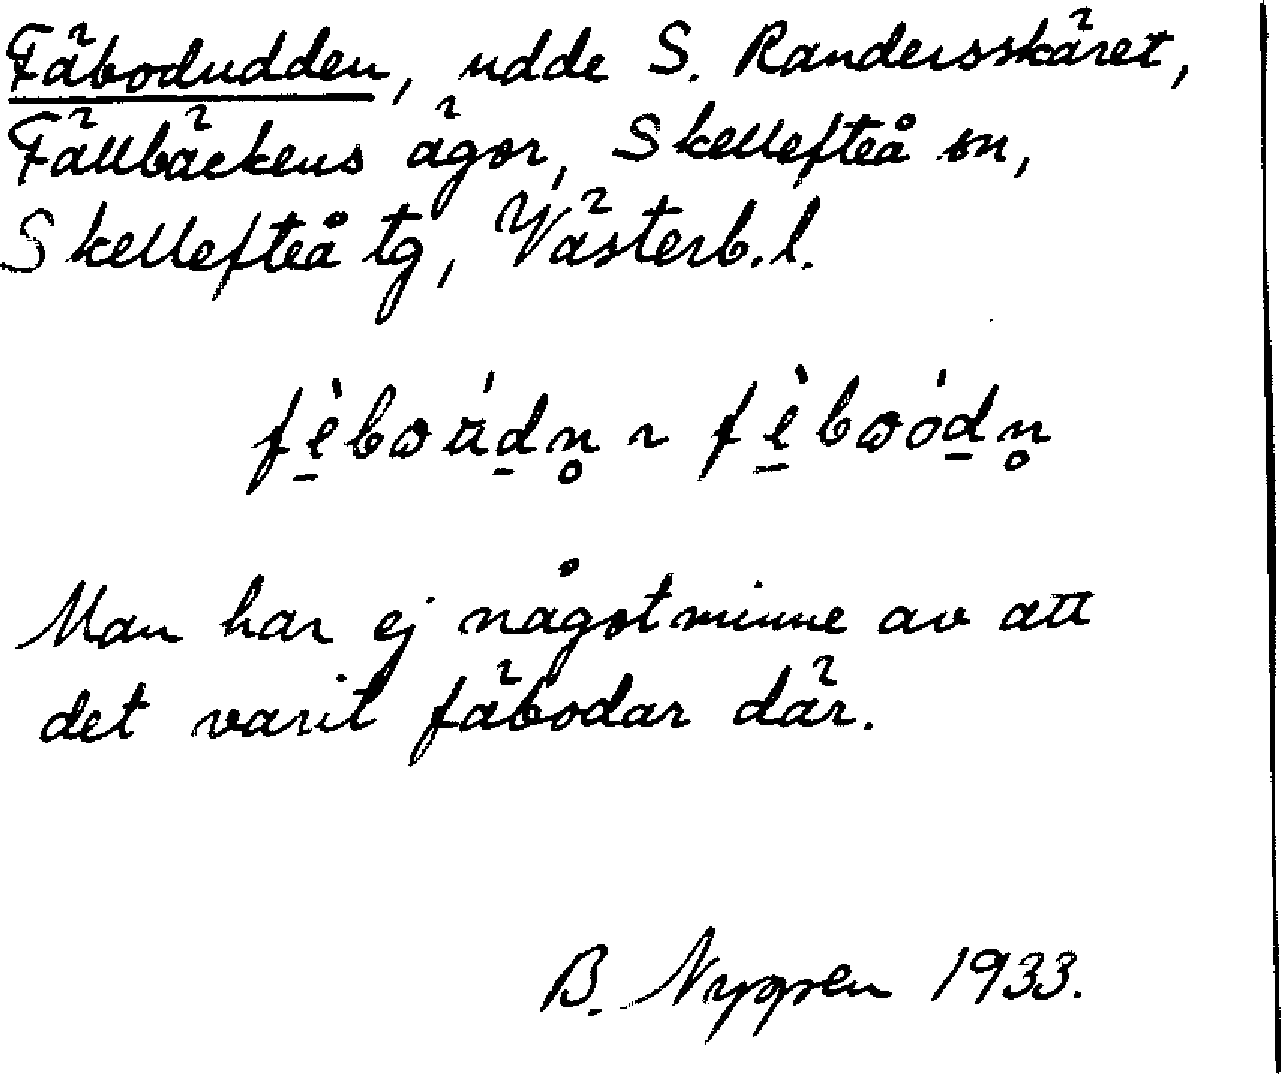 Fäbodudden, udde S. Randersskäret,
Fällbäckens ägor, Skellefteå sn,
Skellefteå tg, Västerb. l.
fè̲bωɯ́d̲n̥ ~ fè̲bωód̲n̥
Man har ej något minne av att
det varit fäbodar där.
B. Nygren 1933.